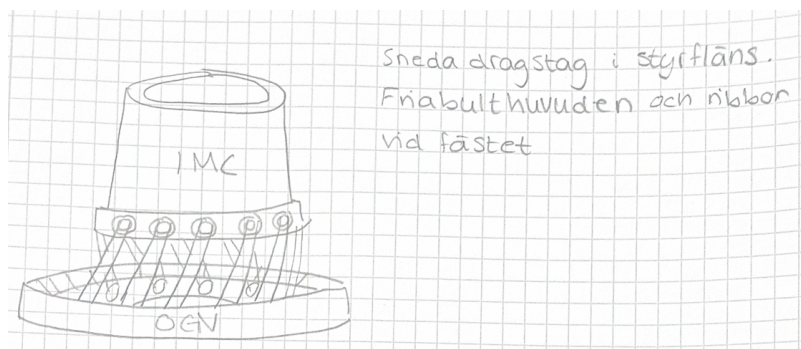 Sneda dragstag i styrfläns.
Friabulthuvuden och ribbor
vid fästet
IMC
OGV